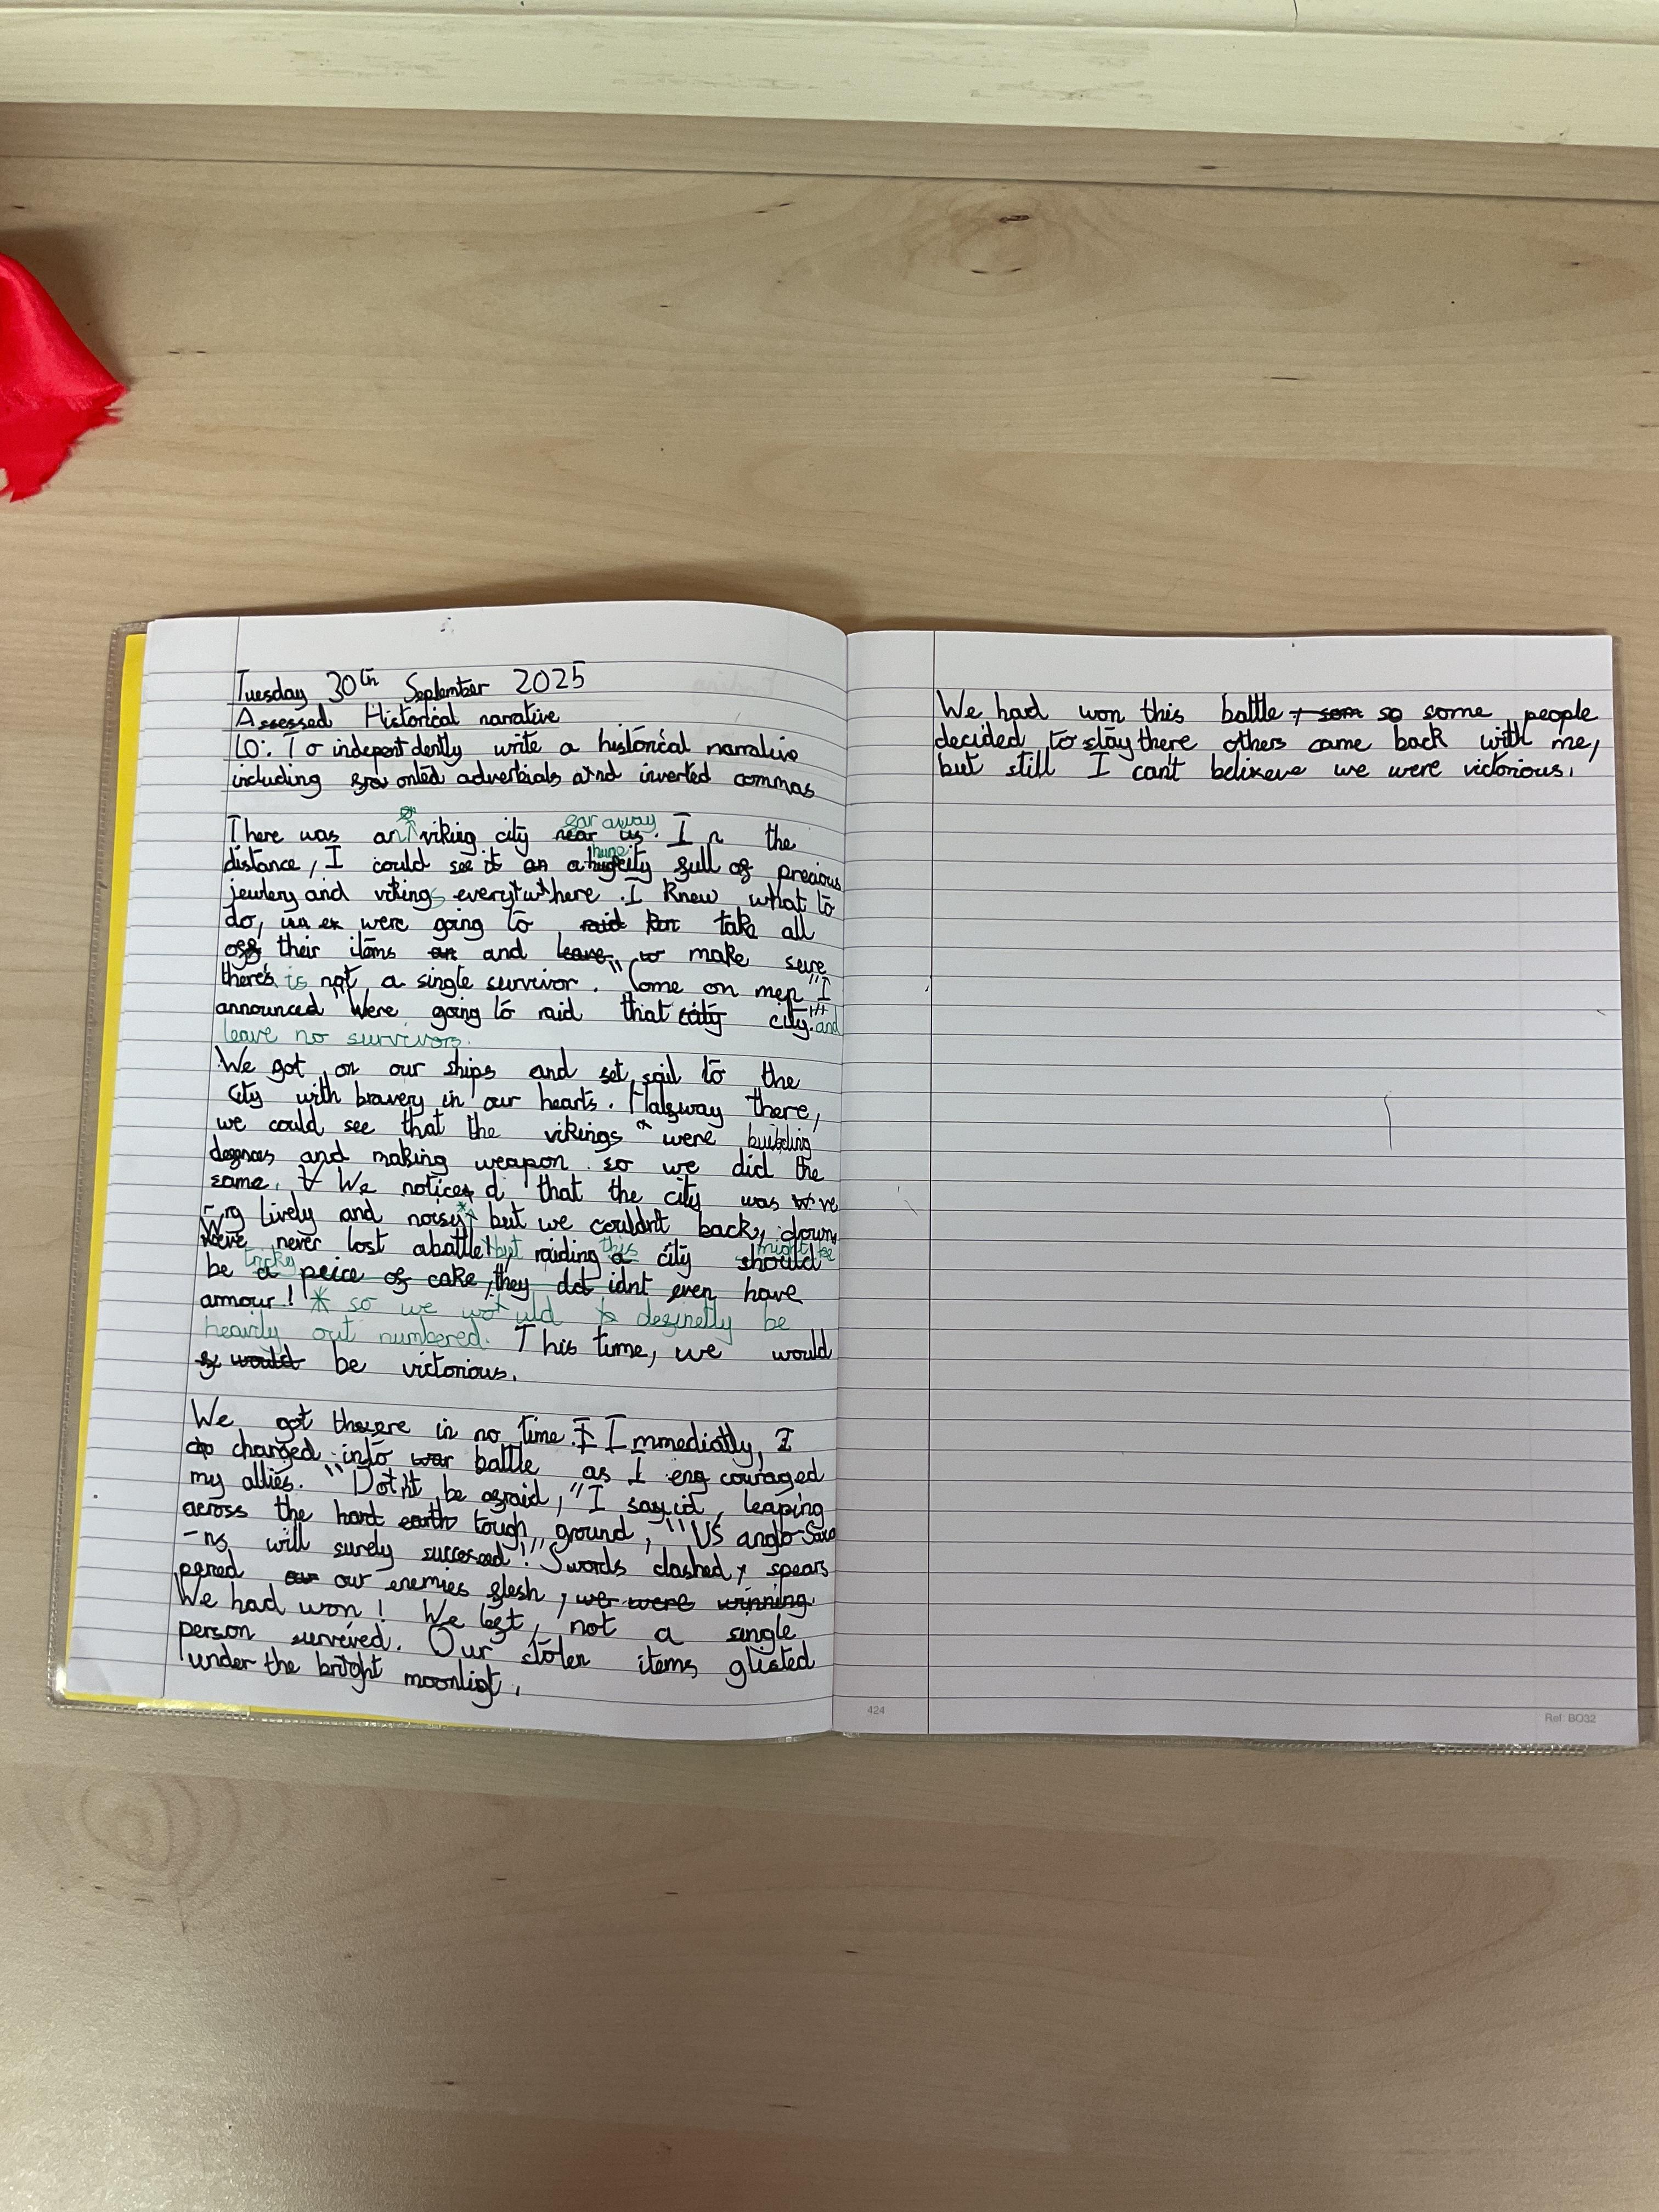 Tuesday 30th September 2025
Assessed Historical narrative
LO: To indepentdently write a historical narrative
including fronted adverbials and inverted commas
There was a viking city far away. In the
distance, I could see a huge city full of precious
jewlery and vikings everywhere. I knew what to
do, were going to take all
off their items and make sure
there is not a single survivor. "Come on men" I
announced "We're going to raid that city and
leave no survivors.
We got on our ships and set sail to the
city with bravery in our hearts. Halfway there,
we could see that the vikings were building
defences and making weapon so we did the
same. We noticed that the city was ve
-ry lively and noisy but we couldn't back down
We've never lost a battle but raiding this city might be
tricky they didnt even have
armour! * so we would definetly be
heavily out numbered. This time, we would
be victorious.
We got there in no time. Immediatly, I
changed into battle as I encouraged
my allies. "Dont be afraid," I sayid, leaping
across the hard tough ground, "US anglo-Saxo
-ns will surely succeed!" Swords clashed, spears
pered our enemies flesh,
We had won! We left, not a single
person surveived. Our stolen items glisted
under the bright moonligt.
We had won this battle so some people
decided to stay there others came back with me,
but still I can't believe we were victorious.
424
Ref: BO32